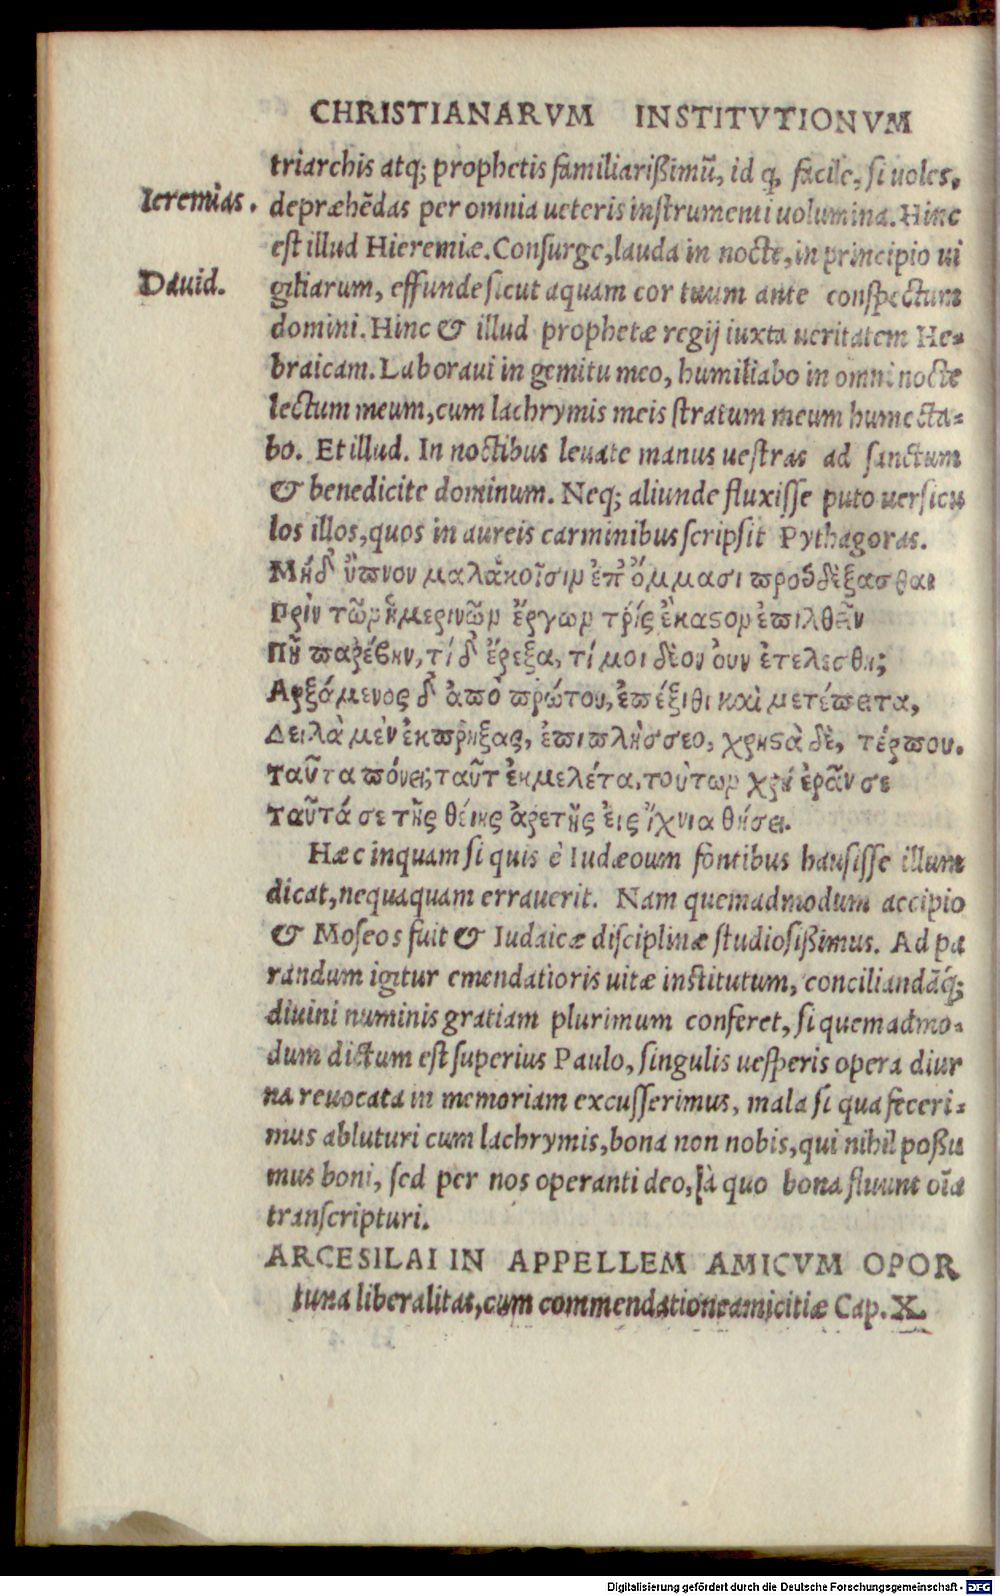 CHRISTIANARVM INSTITVTIONVM
triarchis atq; prophetis familiarißimū, id q, facile, si uoles,
Ieremias. depræhẽdas per omnia ueteris instrumenti uolumina. Hinc
est illud Hieremiæ. Consurge, lauda in nocte, in principio ui
Dauid. giliarum, effunde sicut aquam cor tuum ante conspectum
domini. Hinc & illud prophetæ regij iuxta ueritatem He-
braicam. Laboraui in gemitu meo, humiliabo in omni nocte
lectum meum, cum lachrymis meis stratum meum humecta-
bo. Et illud. In noctibus leuate manus uestras ad sanctum
& benedicite dominum. Neq; aliunde fluxisse puto uersicu
los illos, quos in aureis carminibus scripsit Pythagoras.
Μηδ' ὕπνον μαλακοῖσιν ἐπ' ὄμμασι προσδέξασθαι
Πρὶν τῶν ἡμερινῶν ἔργων τρίς ἕκαστον ἐπελθεῖν
Πῆ παρέβην, τί δ' ἔρεξα, τί μοι δέον οὐν ἐτελέσθη;
Αρξάμενος δ' ἀπὸ πρώτου, ἐπέξιθι καὶ μετέπειτα,
Δειλὰ μὲν ἐκπρήξας, ἐπιπλήσσεο, χρηστὰ δὲ, τέρπου.
Ταῦτα πόνει, ταῦτ' ἐκμελέτα, τούτων χρὴ ἐρᾶν σε
Ταῦτά σε τῆς θείης ἀρετῆς εἰς ἴχνια θήσει.
Hæc inquam si quis è Iudæoum fontibus hausisse illum
dicat, nequaquam errauerit. Nam quemadmodum accipio
& Moseos fuit & Iudaicæ disciplinæ studiosißimus. Ad pa
randum igitur emendatioris uitæ institutum, conciliandāq́;
diuini numinis gratiam plurimum conferet, si quemadmo-
dum dictum est superius Paulo, singulis uesperis opera diur
na reuocata in memoriam excusserimus, mala si qua feceri-
mus abluturi cum lachrymis, bona non nobis, qui nihil poßu
mus boni, sed per nos operanti deo, à quo bona fluunt oīa
transcripturi.
ARCESILAI IN APPELLEM AMICVM OPOR
tuna liberalitas, cum commendatione amicitiæ Cap. X.
Digitalisierung gefördert durch die Deutsche Forschungsgemeinschaft - DFG